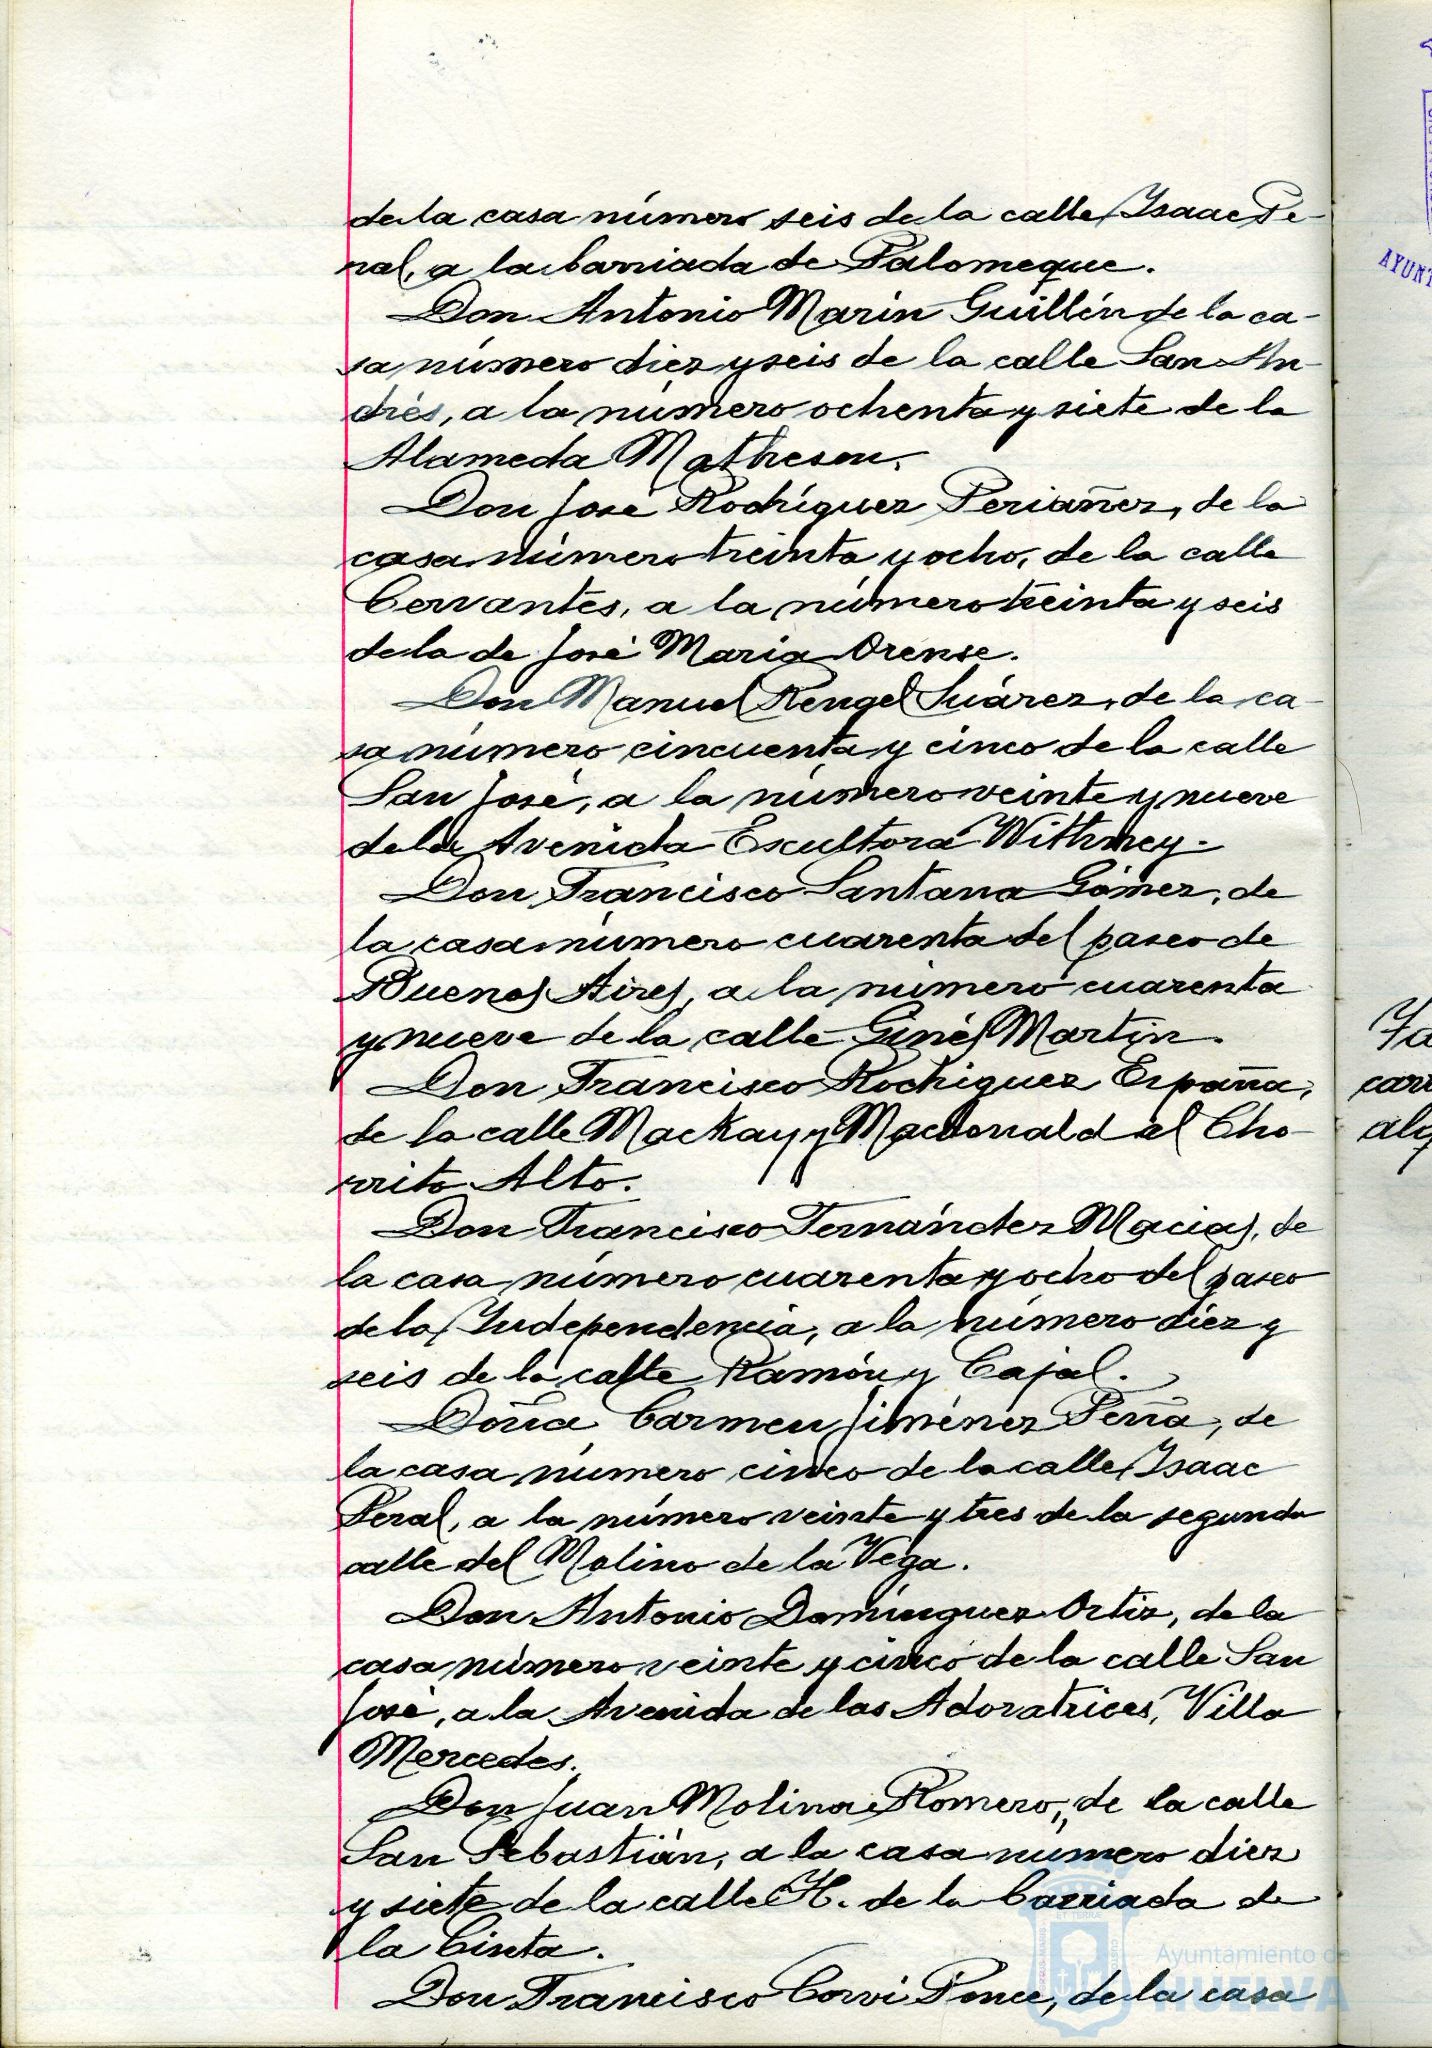 de la casa número seis de la calle Isaac Pe-
ral, a la barriada de Palomeque.
Don Antonio Marín Guillén de la ca-
sa número diez y seis de la calle San An-
drés, a la número ochenta y siete de la
Alameda Matheson.
Don José Rodríguez Periañez, de la
casa número treinta y ocho, de la calle
Cervantes, a la número treinta y seis
de la de José María Orense.
Don Manuel Rengel Suárez, de la ca-
sa número cincuenta y cinco de la calle
San José, a la número veinte y nueve
de la Avenida Escultora Withney.
Don Francisco Santana Gómez, de
la casa número cuarenta del paseo de
Buenos Aires, a la número cuarenta
y nueve de la calle Ginés Martín.
Don Francisco Rodríguez España,
de la calle Mackay y Macdonald al Cho-
rrito Alto.
Don Francisco Fernández Macias, de
la casa número cuarenta y ocho del paseo
de la Independencia, a la número diez y
seis de la calle Ramón y Cajal.
Doña Carmen Jiménez Peña, de
la casa número cinco de la calle Isaac
Peral, a la número veinte y tres de la segunda
calle del Molino de la Vega.
Don Antonio Domínguez Ortiz, de la
casa número veinte y cinco de la calle San
José, a la Avenida de las Adoratrices, Villa
Mercedes.
Don Juan Molina Romero, de la calle
San Sebastián, a la casa número diez
y siete de la calle H. de la barriada de
la Cinta.
Don Francisco Corvi Ponce, de la casa
Ayuntamiento de
HUELVA
AYUNT